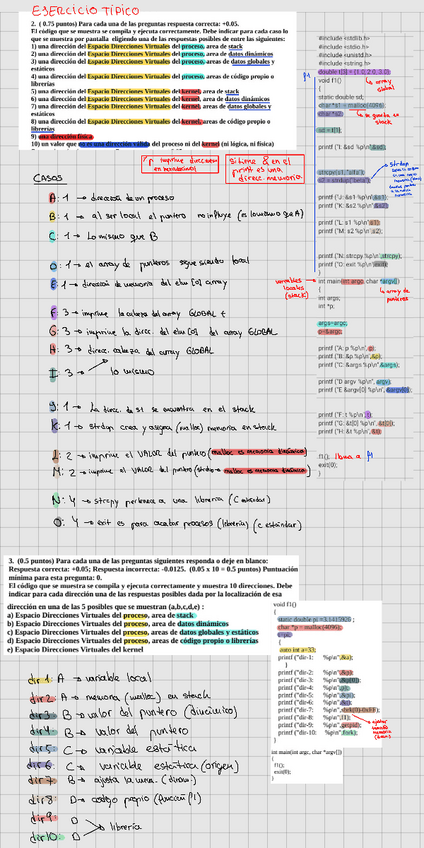 EJERCICIO TÍPICO
2. ( 0.75 puntos) Para cada una de las preguntas respuesta correcta: +0.05.
El código que se muestra se compila y ejecuta correctamente. Debe indicar para cada caso lo
que se muestra por pantalla eligiendo una de las respuestas posibles de entre las siguientes:
1) una dirección del Espacio Direcciones Virtuales del proceso, area de stack
2) una dirección del Espacio Direcciones Virtuales del proceso, area de datos dinámicos
3) una dirección del Espacio Direcciones Virtuales del proceso, area de datos globales y
estáticos
4) una dirección del Espacio Direcciones Virtuales del proceso, areas de código propio o
librerias
5) una dirección del Espacio Direcciones Virtuales del kernel, area de stack
6) una dirección del Espacio Direcciones Virtuales del kernel, area de datos dinámicos
7) una dirección del Espacio Direcciones Virtuales del kernel, area de datos globales y
estáticos
8) una dirección del Espacio Direcciones Virtuales del kernel, areas de código propio o
librerias
9) una dirección física
10) un valor que no es una dirección válida del proceso ni del kernel (ni lógica, ni física)
#include <stdlib.h>
#include <stdio.h>
#include <unistd.h>
#include <string.h>
void f1()
{
array global
static double sd;
char *s1 = malloc(4096);
char *s2;
se guarda en stack
sd = t[1];
printf ("I: &sd %p\n",&sd);
strcpy(s1, "alfa");
s2 = strdup("beta");
printf ("J: &s1 %p\n",&s1);
printf ("K: &s2 %p\n",&s2);
printf ("L: s1 %p\n",s1);
printf ("M: s2 %p\n",s2);
printf ("N: strcpy %p\n",strcpy);
printf ("O: exit %p\n",exit);
}
variables locales (stack)
int main(int argc, char *argv[])
{
array de punteros
int args;
int *p;
args=argc;
p=&argc;
printf ("A: p %p\n",p);
printf ("B: &p %p\n",&p);
printf ("C: &args %p\n",&args);
printf ("D argv %p\n", argv);
printf ("E &argv[0] %p\n",&argv[0]);
printf ("F: t %p\n",t);
printf ("G: &t[0] %p\n", &t[0]);
printf ("H: &t %p\n",&t);
f1(); llama a f1
exit(0);
}
%p imprime direcciones en hexadecimal
Si tiene & en el print es una direcc. memoria
CASOS
A: 1 → dirección de un proceso
B: 1 → al ser local el puntero no influye (es lo mismo que A)
C: 1 → Lo mismo que B
D: 1 → el array de punteros sigue siendo local
E: 1 → dirección de memoria del elem [0] array
F: 3 → imprime la cabeza del array GLOBAL t
G: 3 → imprime la direc. del elem [0] del array GLOBAL
H: 3 → direc. cabeza del array GLOBAL
I: 3 → lo mismo
J: 1 → La direc. de s1 se encuentra en el stack
K: 1 → strdup crea y asigna (malloc) memoria en stack
L: 2 → imprime el VALOR del puntero (malloc es memoria dinámica)
M: 2 → imprime el VALOR del puntero (strdup → malloc es memoria dinámica)
N: 4 → strcpy pertenece a una libreria (C estandar)
O: 4 → exit es para acabar procesos (libreria) (c estándar)
3. (0.5 puntos) Para cada una de las preguntas siguientes responda o deje en blanco:
Respuesta correcta: +0.05; Respuesta incorrecta: -0.0125. (0.05 x 10 = 0.5 puntos) Puntuación
mínima para esta pregunta: 0.
El código que se muestra se compila y ejecuta correctamente y muestra 10 direcciones. Debe
indicar para cada dirección una de las respuestas posibles dada por la localización de esa
dirección en una de las 5 posibles que se muestran (a,b,c,d,e) :
a) Espacio Direcciones Virtuales del proceso, area de stack
b) Espacio Direcciones Virtuales del proceso, area de datos dinámicos
c) Espacio Direcciones Virtuales del proceso, area de datos globales y estáticos
d) Espacio Direcciones Virtuales del proceso, area de código propio o librerias
e) Espacio Direcciones Virtuales del kernel
void f1()
{
static double pi =3.1415926 ;
char *p = malloc(4096);
{
auto int a=33;
printf ("dir-1: %p\n",&a);
}
printf ("dir-2: %p\n",&p);
printf ("dir-3: %p\n",&p[0]);
printf ("dir-4: %p\n",p);
printf ("dir-5: %p\n",&pi);
printf ("dir-6: %p\n",&c);
printf ("dir-7: %p\n",sbrk(0)-0xFF);
printf ("dir-8: %p\n",f1);
printf ("dir-9: %p\n",getpid);
printf ("dir-10: %p\n",fork);
}
int main(int argc, char *argv[])
{
f1();
exit(0);
}
dir 1: A → variable local
dir 2: A → memoria (malloc) en stack
dir 3: B → valor del puntero (dinámico)
dir 4: B → valor del puntero
dir 5: C → variable estática
dir 6: C → variable estática (origen)
dir 7: B → ajusta la mem. (dinam.)
dir 8: D → codigo propio (función f1)
dir 9: D
dir 10: D → libreria